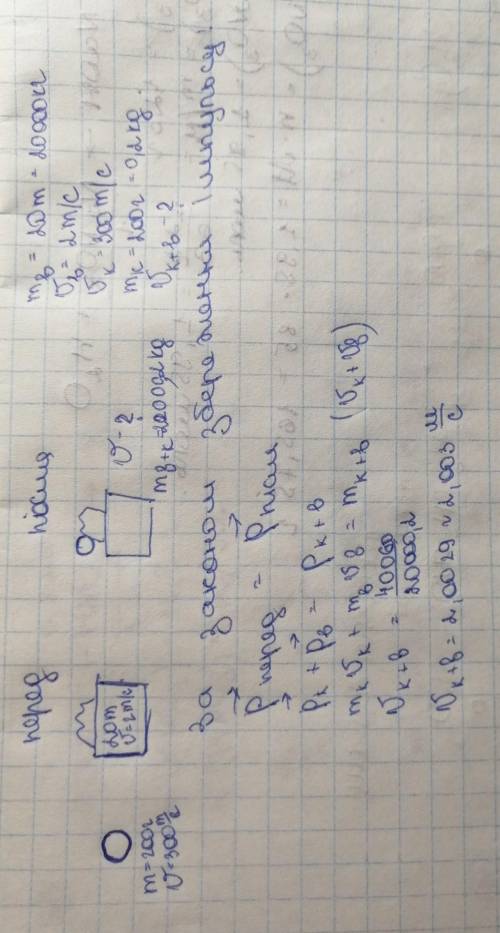 перед
після
m = 200г
υ = 300 м/с
20m
υ = 2m/c
υ - ?
m в+к = 20000,2 kg
m в = 20m = 20000кг
υ в = 2m/c
υ к = 300m/c
m к = 200г = 0,2kg
υ к+в - ?
За законом збереження імпульсу:
p перед = p після
p к + p в = p к+в
m к υ к + m в υ в = m к+в (υ к + υ в)
υ к+в = 40060 / 20000,2
υ к+в = 2,0029 ≈ 2,003 м/с